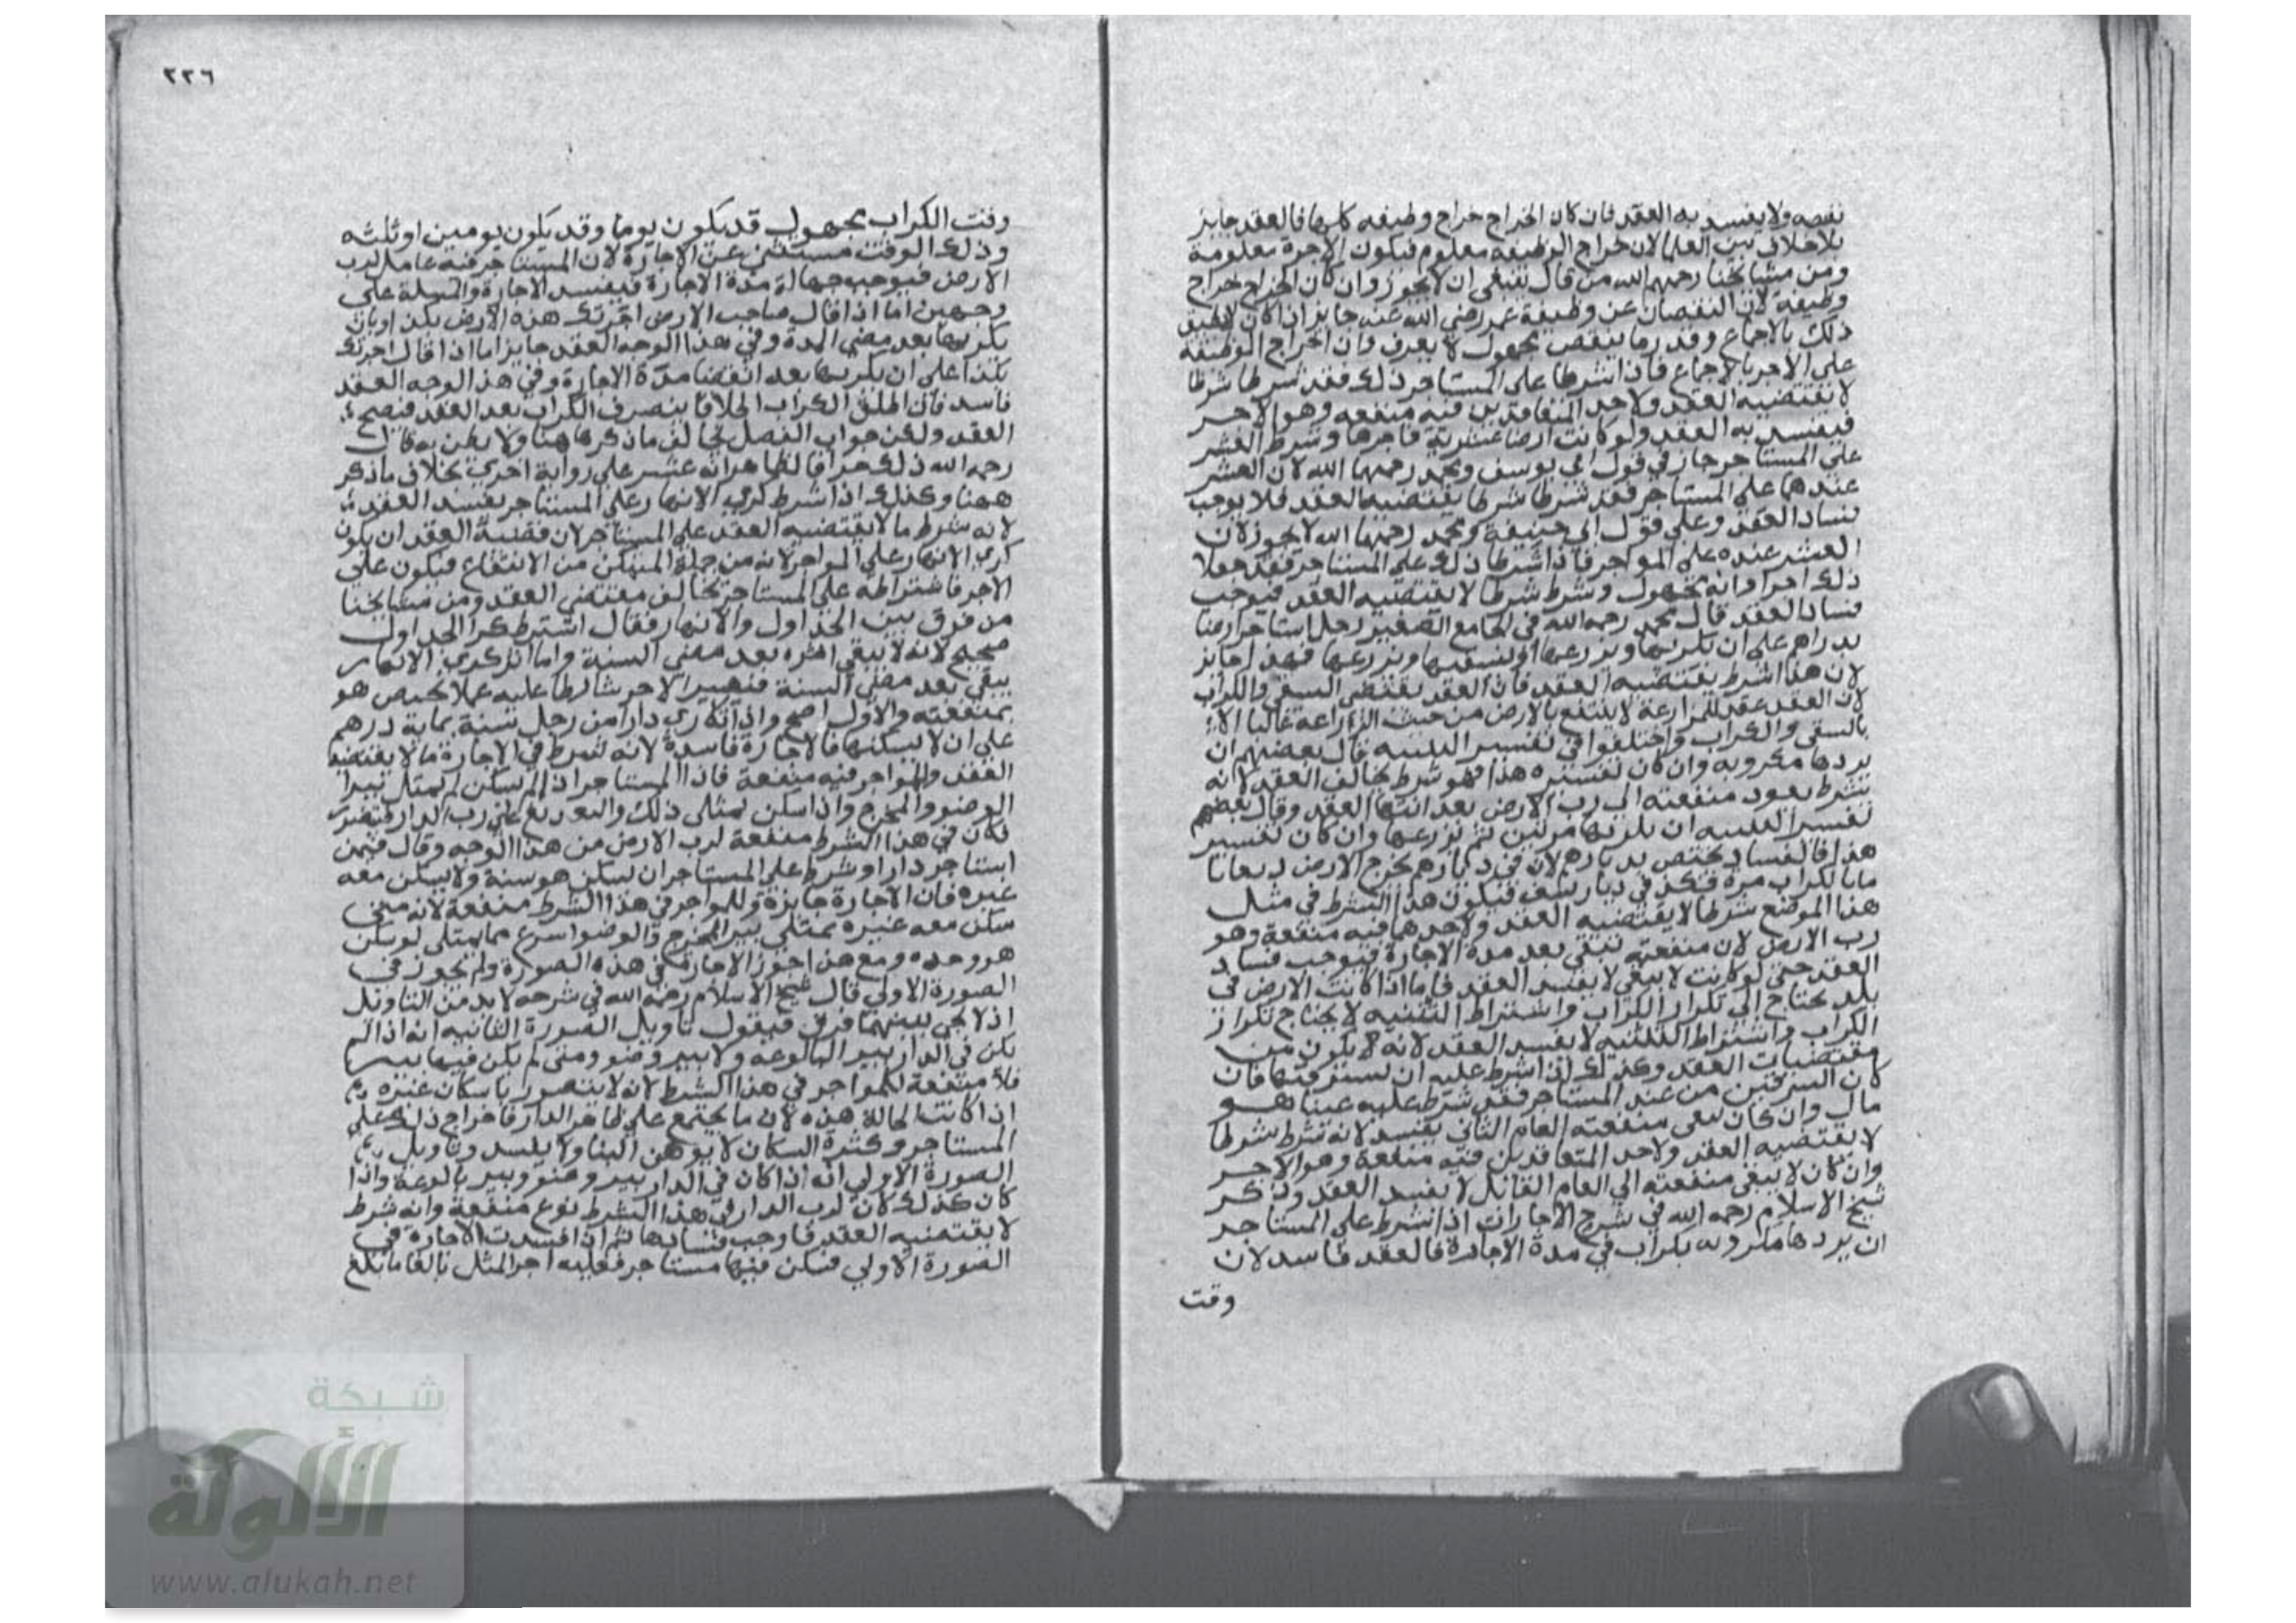 نقصه ولا يفسد به العقد فان كان الخراج خراج وظيفه كلها فالعقد جايز
بلا خلاف بين العلما لان خراج الوظيفه معلوم فيكون الاجرة معلومة
ومن مشايخنا رحمهم الله من قال ينبغى ان لا يجوز وان كان الخراج خراج
وظيفة لان النقصان عن وظيفة عمر رضي الله عنه جايز اذا كان لا تطيق
ذلك بالاجماع وقدر ما ينقص مجهول لا يعرف وان الخراج الوظيفه
على الاجر بالاجماع فاذا اشرطا على المستاجر ذلك فقد شرطا شرطا
لا تقتضيه العقد ولاحد المتعاقدين فيه منفعه وهو الاجر
فيفسد به العقد ولو كانت ارضا عشرية فاجرها وشرط العشر
على المستاجر جاز في قول ابي يوسف ومحمد رحمهما الله لان العشر
عندهما على المستاجر فقد شرطا شرطا يقتضيه العقد فلا يوجب
فساد العقد وعلى قول ابي حنيفة ومحمد رحمهما الله لا يجوز لان
العشر عنده على المواجر فاذا اشرطا ذلك على المستاجر فقد جعلا
ذلك اجرا وانه مجهول وشرط شرطا لا يقتضيه العقد فيوجب
فساد العقد قال محمد رحمه الله في الجامع الصغير رجل استاجر ارضا
بدراهم على ان يكربها ويزرعها او يسقيها ويزرعها فهذا جايز
لان هذا شرط يقتضيه العقد فان العقد يقتضى السقى والكراب
لان العقد عقد للمزارعة لا ينتفع بالارض من حيث الزراعة غالبا الا
بالسقى والكراب واختلفوا في تفسير التثنيه قال بعضهم ان
يردها مكروبه وان كان تفسيره هذا فهو شرط يخالف العقد لانه
شرط يعود منفعته الى رب الارض بعد انتها العقد وقال بعضهم
تفسير التثنيه ان يكربها مرتين ثم يزرعها وان كان تفسير
هذا فالفساد يختص بديارهم لان في ديارهم تخرج الارض ريعا تاما
بالكراب مرة فيكون هذا الشرط في مثل
هذا الموضع شرطا لا يقتضيه العقد ولاحدهما فيه منفعة وهو
رب الارض لان منفعته تبقى بعد مدة الاجارة فيوجب فساد
العقد حتى لو كانت لا يبقى لا يفسد العقد فاما اذا كانت الارض في
بلد يحتاج الى تكرار الكراب واشتراط التثنيه لا يحتاج تكرار
الكراب واشتراط التثنيه لا يفسد العقد لانه لا يكون من
مقتضيات العقد وكذلك اذا اشرط عليه ان يسرقنها فان
كان السرقين من عند المستاجر فقد شرط عليه عينا هو
مال وان كان تبقى منفعته العام الثاني يفسد لانه شرط شرطا
لا يقتضيه العقد ولاحد المتعاقدين فيه منفعة وهو الاجر
وان كان لا يبقى منفعته الى العام القابل لا يفسد العقد وذكر
شيخ الاسلام رحمه الله في شرح الاجارات اذا شرط على المستاجر
ان يردها مكروبه بكراب في مدة الاجارة فالعقد فاسد لان
وقت
٢٢٦
وقت الكراب مجهول قد يكون يوما وقد يكون يومين او ثلثه
وذلك الوقت مستثنى عن الاجارة لان المستاجر فيه عامل لرب
الارض فيوجب جهالة مدة الاجارة فيفسد الاجارة والمسلة على
وجهين اما اذا قال صاحب الارض اجرتك هذه الارض بكذا وبان
يكربها بعد مضي المدة وفي هذا الوجه العقد جايز اما اذا قال اجرتك
بكذا على ان يكربها بعد انقضا مدة الاجارة وفي هذا الوجه العقد
فاسد فان اطلق الكراب اطلاقا ينصرف الكراب بعد العقد فيصح
العقد ولكن جواب الفصل يخالف ما ذكر هاهنا ولا يظن به قال
رحمه الله ذلك جزافا لظاهر انه عثر على رواية اخرى بخلاف ما ذكر
ههنا وكذلك اذا شرط كرى الانهار على المستاجر يفسد العقد
لانه شرط ما لا يقتضيه العقد على المستاجر لان قضية العقد ان يكون
كرى الانهار على المواجر لانه من جملة التمكن من الانتفاع فيكون على
الاجر فاشتراطه على المستاجر يخالف مقتضى العقد ومن مشايخنا
من فرق بين الجداول والانهار فقال اشترط كرا الجداول
صحيح لانه لا يبقى اثره بعد مضي السنة واما اثر كرى الانهار
يبقى بعد مضي السنة فيصير الاجر شارطا عليه عملا يختص هو
بمنفعته والاول اصح واذا تكارى دارا من رجل سنة بماية درهم
على ان لا يسكنها فالاجارة فاسدة لانه شرط في الاجارة ما لا يقتضيه
العقد وللمواجر فيه منفعة فاذا المستاجر اذا لم يسكن لم يمتل بيرا
الوضو والمخرج واذا سكن تمتلى ذلك والتفريغ على رب الدار فيتضرر
فكان في هذا الشرط منفعة لرب الارض من هذا الوجه وقال فيمن
استاجر دارا وشرط على المستاجر ان يسكن هو سنة ولا يسكن معه
غيره فان الاجارة جايزة وللمواجر في هذا الشرط منفعة لانه متى
سكن معه غيره يمتلى بير المخرج والوضو اسرع مما يمتلى لو سكن
هو وحده ومع هذا جوز الاجارة في هذه الصورة ولم يجوز في
الصورة الاولى قال شيخ الاسلام رحمه الله في شرحه لا بد من التاويل
اذ لا يجى بينهما فرق فيقول تاويل الصورة الثانيه انه اذا لم
يكن في الدار بير البالوعه ولا بير وضو ومتى لم يكن فيها بير
فلا منفعة للمواجر في هذا الشرط لانه لا يتصور باسكان غيره
اذا كانت الحالة هذه لان ما يجتمع على ظاهر الدار فاخراج ذلك على
المستاجر وكثرة السكان لا يوهن البنا ولا يفسد وتاويل
الصورة الاولى انه اذا كان في الدار بير وضو وبير بالوعة واذا
كان كذلك كان لرب الدار في هذا الشرط نوع منفعة وانه شرط
لا يقتضيه العقد فاوجب فسادها ثم اذا فسدت الاجارة في
الصورة الاولى فسكن فيها مستاجر فعليه اجر المثل بالغا ما بلغ
شبكة
الألوكة
www.alukah.net